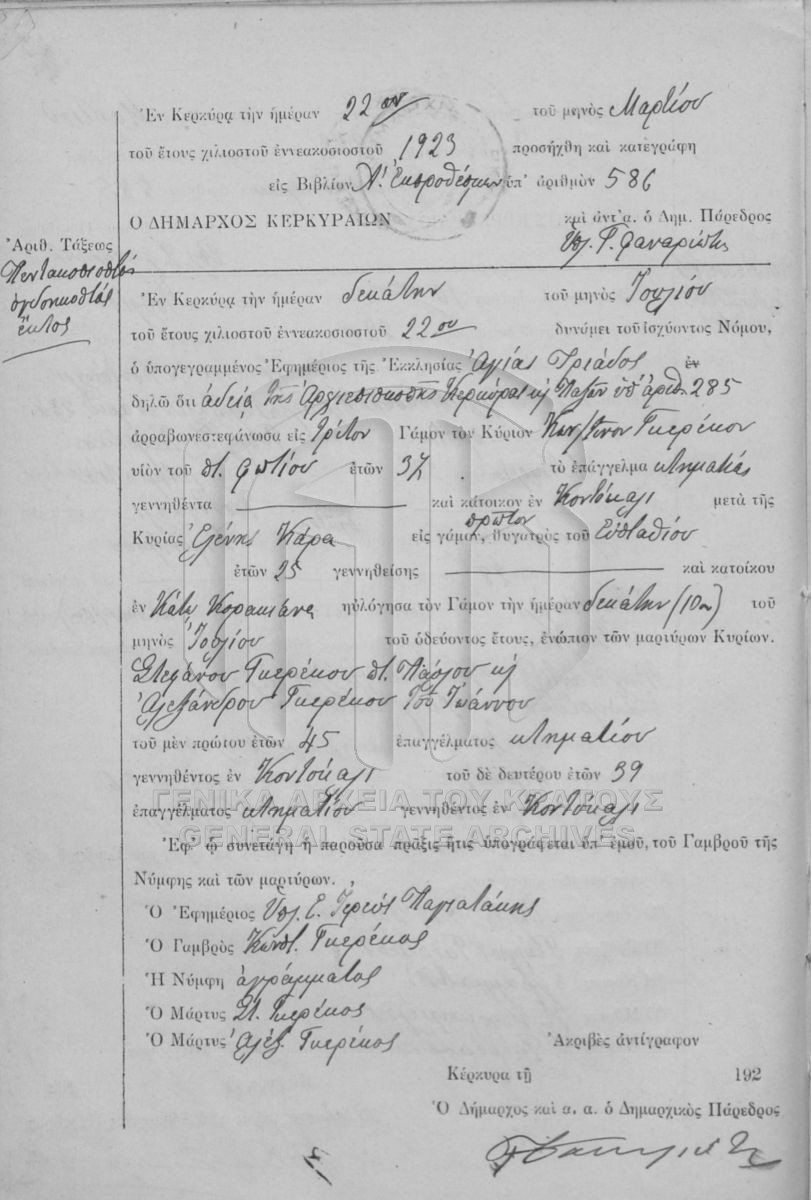 Ἐν Κερκύρᾳ τὴν ἡμέραν 22αν τοῦ μηνὸς Μαρτίου
τοῦ ἔτους χιλιοστοῦ ἐννεακοσιοστοῦ 1923 προσήχθη καὶ κατεγράφη
εἰς Βιβλίον Λ! Ἐκπροθέσμων ὑπ' ἀριθμὸν 586
Ο ΔΗΜΑΡΧΟΣ ΚΕΡΚΥΡΑΙΩΝ καὶ ἀντ'α. ὁ Δημ. Πάρεδρος
Ὑπ. Γ. Φαναριώτης
Ἀριθ. Τάξεως
Πεντακοσιοστός
ὀγδοηκοστός
ἕκτος
Ἐν Κερκύρᾳ τὴν ἡμέραν δεκάτην τοῦ μηνὸς Ἰουλίου
τοῦ ἔτους χιλιοστοῦ ἐννεακοσιοστοῦ 22ου δυνάμει τοῦ ἰσχύοντος Νόμου,
ὁ ὑπογεγραμμένος Ἐφημέριος τῆς Ἐκκλησίας Ἁγίας Τριάδος ἐν
δηλῶ ὅτι ἀδείᾳ τῆς Ἀρχιεπισκοπῆς Κερκύρας κ Παξῶν ὑπ' ἀριθ. 285
ἀρραβωνεστεφάνωσα εἰς τρίτον Γάμον τὸν Κύριον Κων/τῖνον Γκερέκον
υἱὸν τοῦ πτ. Φωτίου ἐτῶν 37 τὸ ἐπάγγελμα κτηματίας
γεννηθέντα καὶ κάτοικον ἐν Κοντόκαλι μετὰ τῆς
Κυρίας Ἑλένης Κάρα εἰς πρῶτον γάμον, θυγατρὸς τοῦ Εὐσταθίου
ἐτῶν 25 γεννηθείσης καὶ κατοίκου
ἐν Κάτω Κορακιάνα ηὐλόγησα τὸν Γάμον τὴν ἡμέραν δεκάτην (10ην) τοῦ
μηνὸς Ἰουλίου τοῦ ὁδεύοντος ἔτους, ἐνώπιον τῶν μαρτύρων Κυρίων.
Στεφάνου Γκερέκου πτ. Παύλου κ
Ἀλεξάνδρου Γκερέκου τοῦ Ἰωάννου
τοῦ μὲν πρώτου ἐτῶν 45 ἐπαγγέλματος κτηματίου
γεννηθέντος ἐν Κοντόκαλι τοῦ δὲ δευτέρου ἐτῶν 39
ἐπαγγέλματος κτηματίου γεννηθέντος ἐν Κοντόκαλι
ΓΕΝΙΚΑ ΑΡΧΕΙΑ ΤΟΥ ΚΡΑΤΟΥΣ
GENERAL STATE ARCHIVES
Ἐφ' ᾧ συνετάγη ἡ παροῦσα πρᾶξις ἥτις ὑπογράφεται ὑπ' ἐμοῦ, τοῦ Γαμβροῦ τῆς
Νύμφης καὶ τῶν μαρτύρων.
Ὁ Ἐφημέριος Ὑπ. Ε. Ἱερεὺς Παγιατάκης
Ὁ Γαμβρὸς Κωνστ. Γκερέκος
Ἡ Νύμφη ἀγράμματος
Ὁ Μάρτυς Στ. Γκερέκος
Ὁ Μάρτυς Ἀλέξ. Γκερέκος Ἀκριβὲς ἀντίγραφον
Κέρκυρα τῇ 192
Ὁ Δήμαρχος καὶ α. α. ὁ Δημαρχικὸς Πάρεδρος